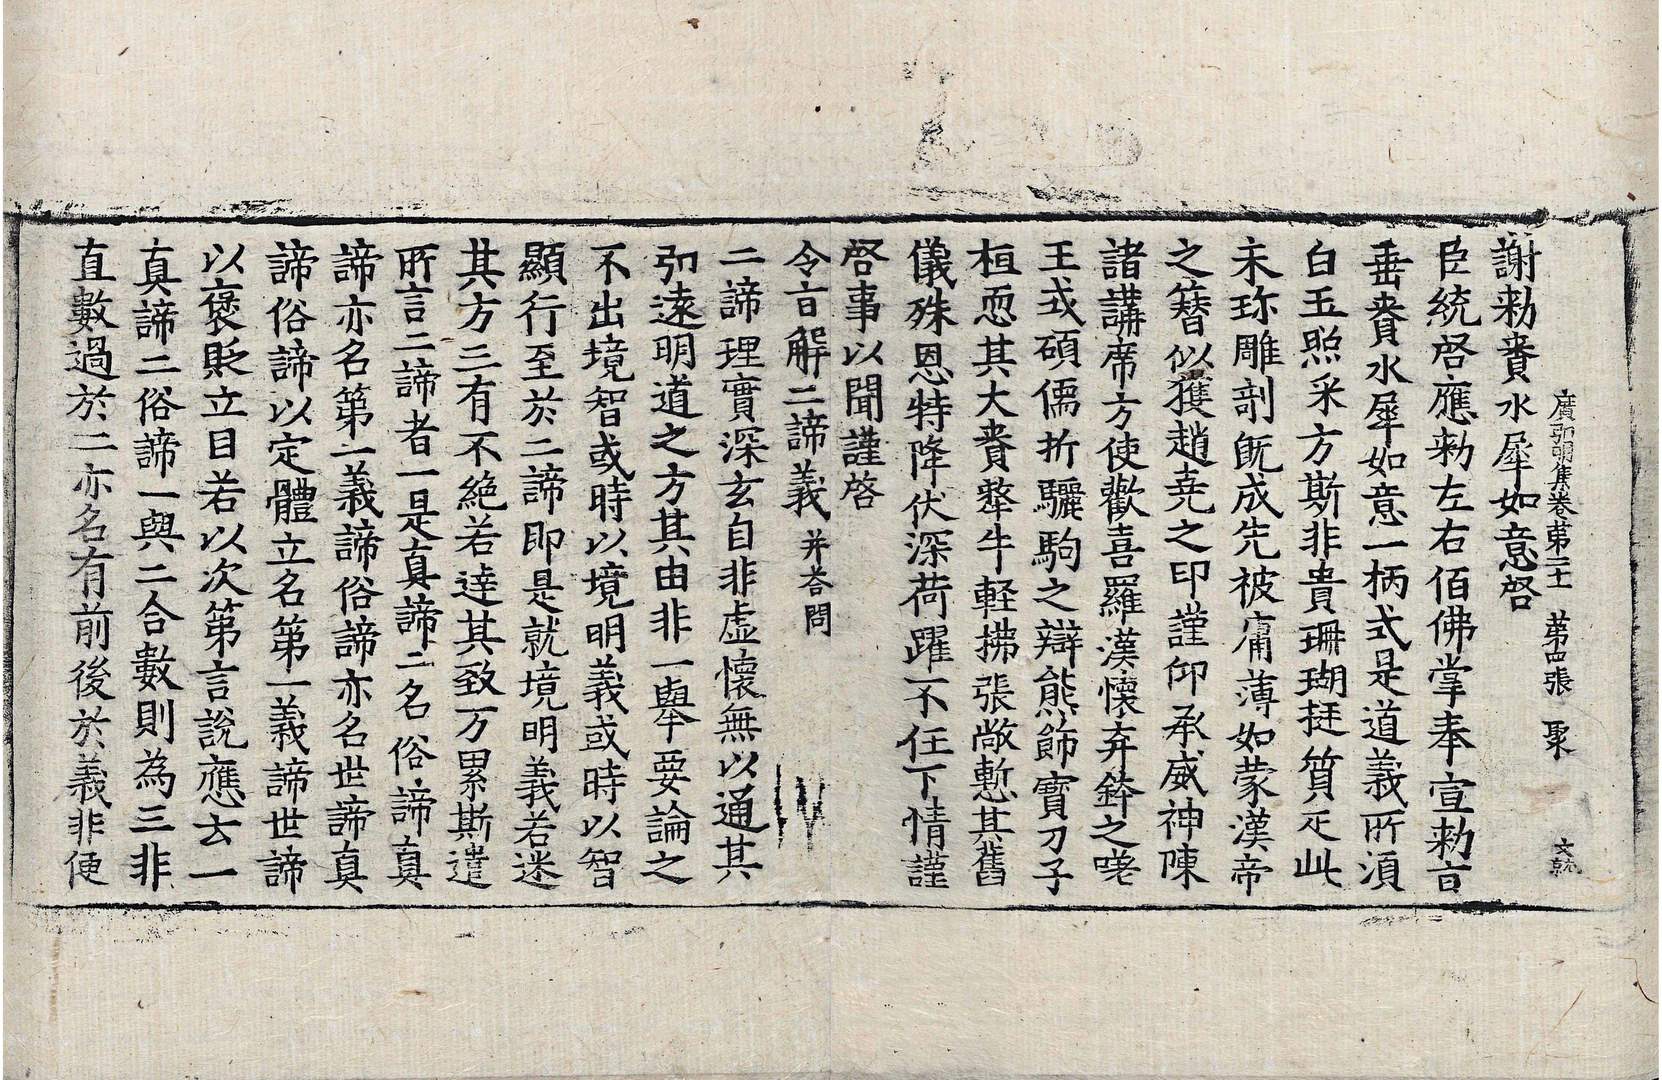 廣弘明集卷第二十 第四張 聚
謝勑賚水犀如意啓
臣統啓應勑左右佰佛掌奉宣勑旨
垂賚水犀如意一柄式是道義所湏
白玉照采方斯非貴珊瑚挺質疋此
未珎雕剖旣成先被庸薄如蒙漢帝
之簪似獲趙堯之印謹仰承威神陳
諸講席方使歡喜羅漢懷弃鉢之嗟
王戎碩儒折驪駒之辯熊飾寶刀子
桓恧其大賚犛牛輕拂張敞慙其舊
儀殊恩特降伏深荷躍不任下情謹
啓事以聞謹啓
令旨解二諦義并荅問
二諦理實深玄自非虛懷無以通其
弘遠明道之方其由非一舉要論之
不出境智或時以境明義或時以智
顯行至於二諦即是就境明義若迷
其方三有不絕若達其致万累斯遣
所言二諦者一是真諦二名俗諦真
諦亦名第一義諦俗諦亦名世諦真
諦俗諦以定體立名第一義諦世諦
以褒貶立目若以次第言說應云一
真諦二俗諦一與二合數則為三非
直數過於二亦名有前後於義非便